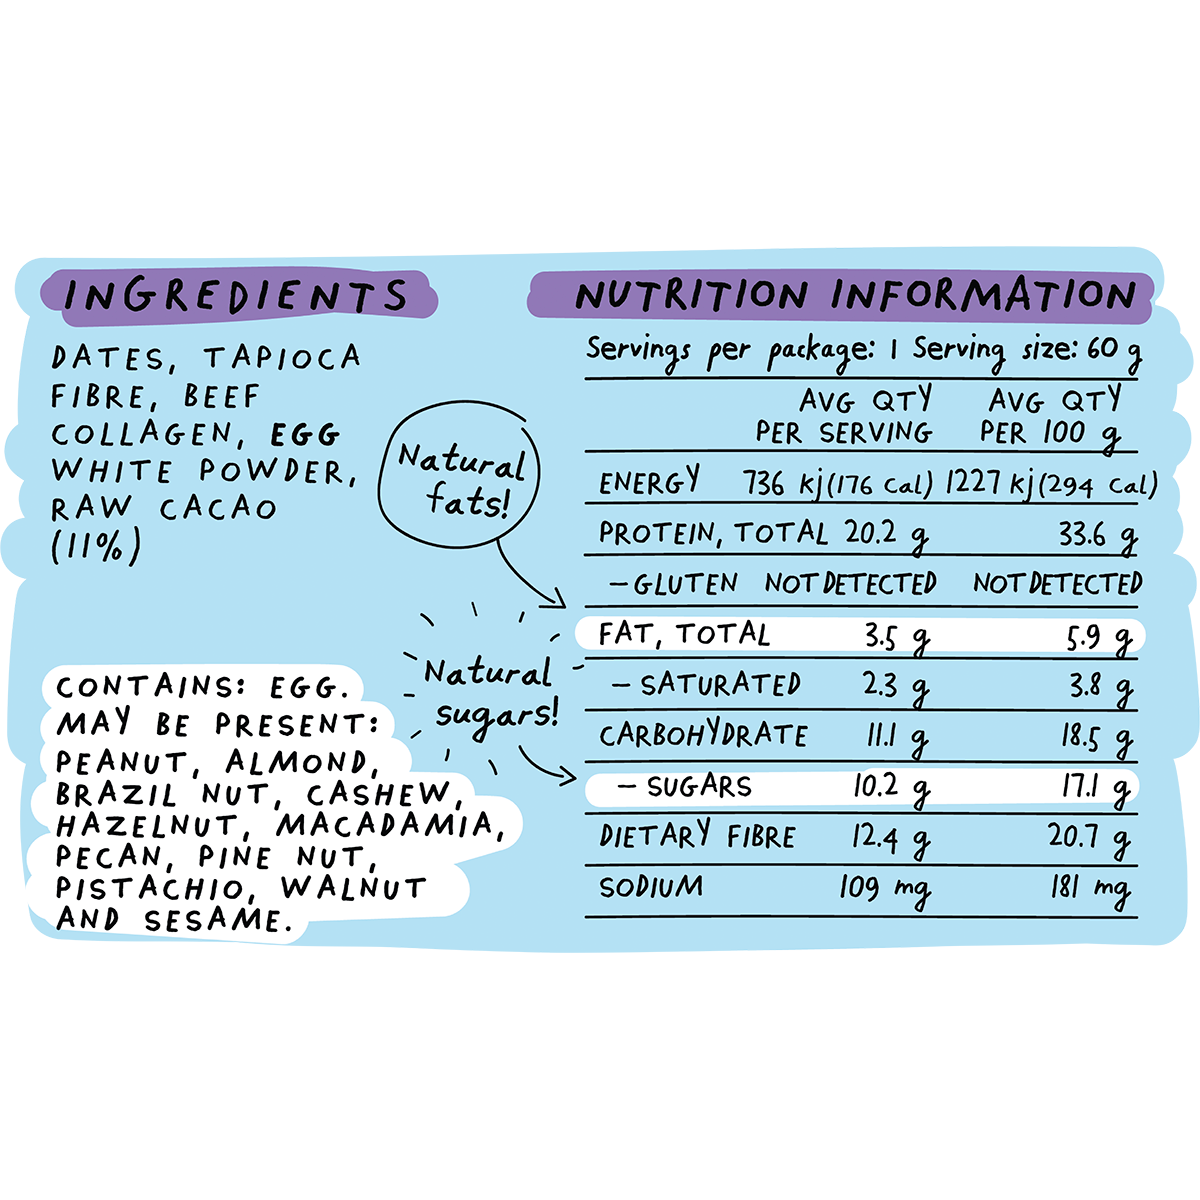 INGREDIENTS
DATES, TAPIOCA
FIBRE, BEEF
COLLAGEN, EGG
WHITE POWDER,
RAW CACAO
(11%)
CONTAINS: EGG.
MAY BE PRESENT:
PEANUT, ALMOND,
BRAZIL NUT, CASHEW,
HAZELNUT, MACADAMIA,
PECAN, PINE NUT,
PISTACHIO, WALNUT
AND SESAME.
Natural
fats!
Natural
sugars!
NUTRITION INFORMATION
Servings per package: 1 Serving size: 60 g
AVG QTY AVG QTY
PER SERVING PER 100 g
ENERGY 736 kj(176 cal) 1227 kj(294 cal)
PROTEIN, TOTAL 20.2 g 33.6 g
– GLUTEN NOT DETECTED NOT DETECTED
FAT, TOTAL 3.5 g 5.9 g
– SATURATED 2.3 g 3.8 g
CARBOHYDRATE 11.1 g 18.5 g
– SUGARS 10.2 g 17.1 g
DIETARY FIBRE 12.4 g 20.7 g
SODIUM 109 mg 181 mg